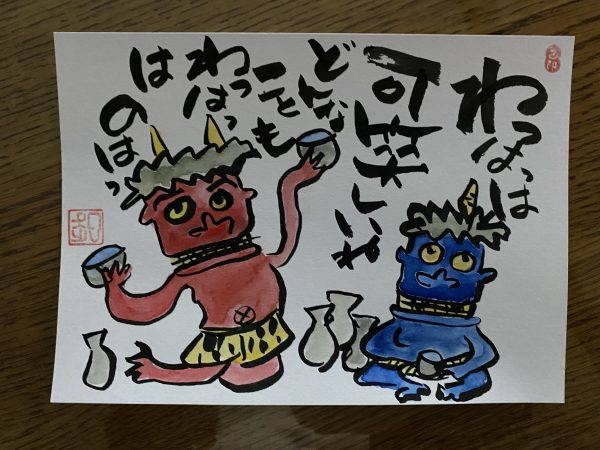 わっはっは
可笑しいね
どんな
ことも
わっはっ
はの
はっ